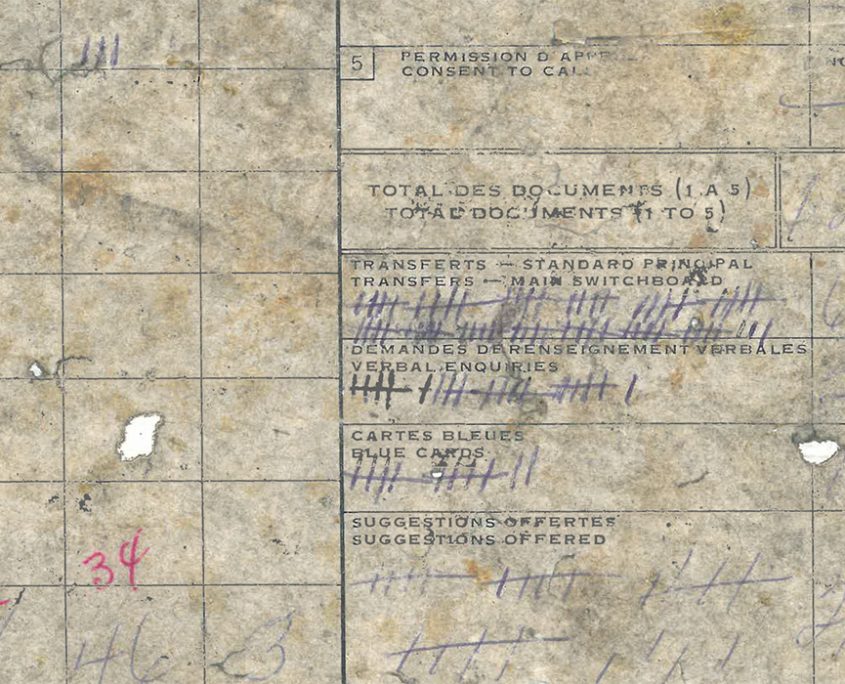 5 PERMISSION D'APPE
CONSENT TO CAL
TOTAL DES DOCUMENTS (1 A 5)
TOTAL DOCUMENTS (1 TO 5)
TRANSFERTS — STANDARD PRINCIPAL
TRANSFERS — MAIN SWITCHBOARD
DEMANDES DE RENSEIGNEMENT VERBALES
VERBAL ENQUIRIES
CARTES BLEUES
BLUE CARDS
SUGGESTIONS OFFERTES
SUGGESTIONS OFFERED
34
46